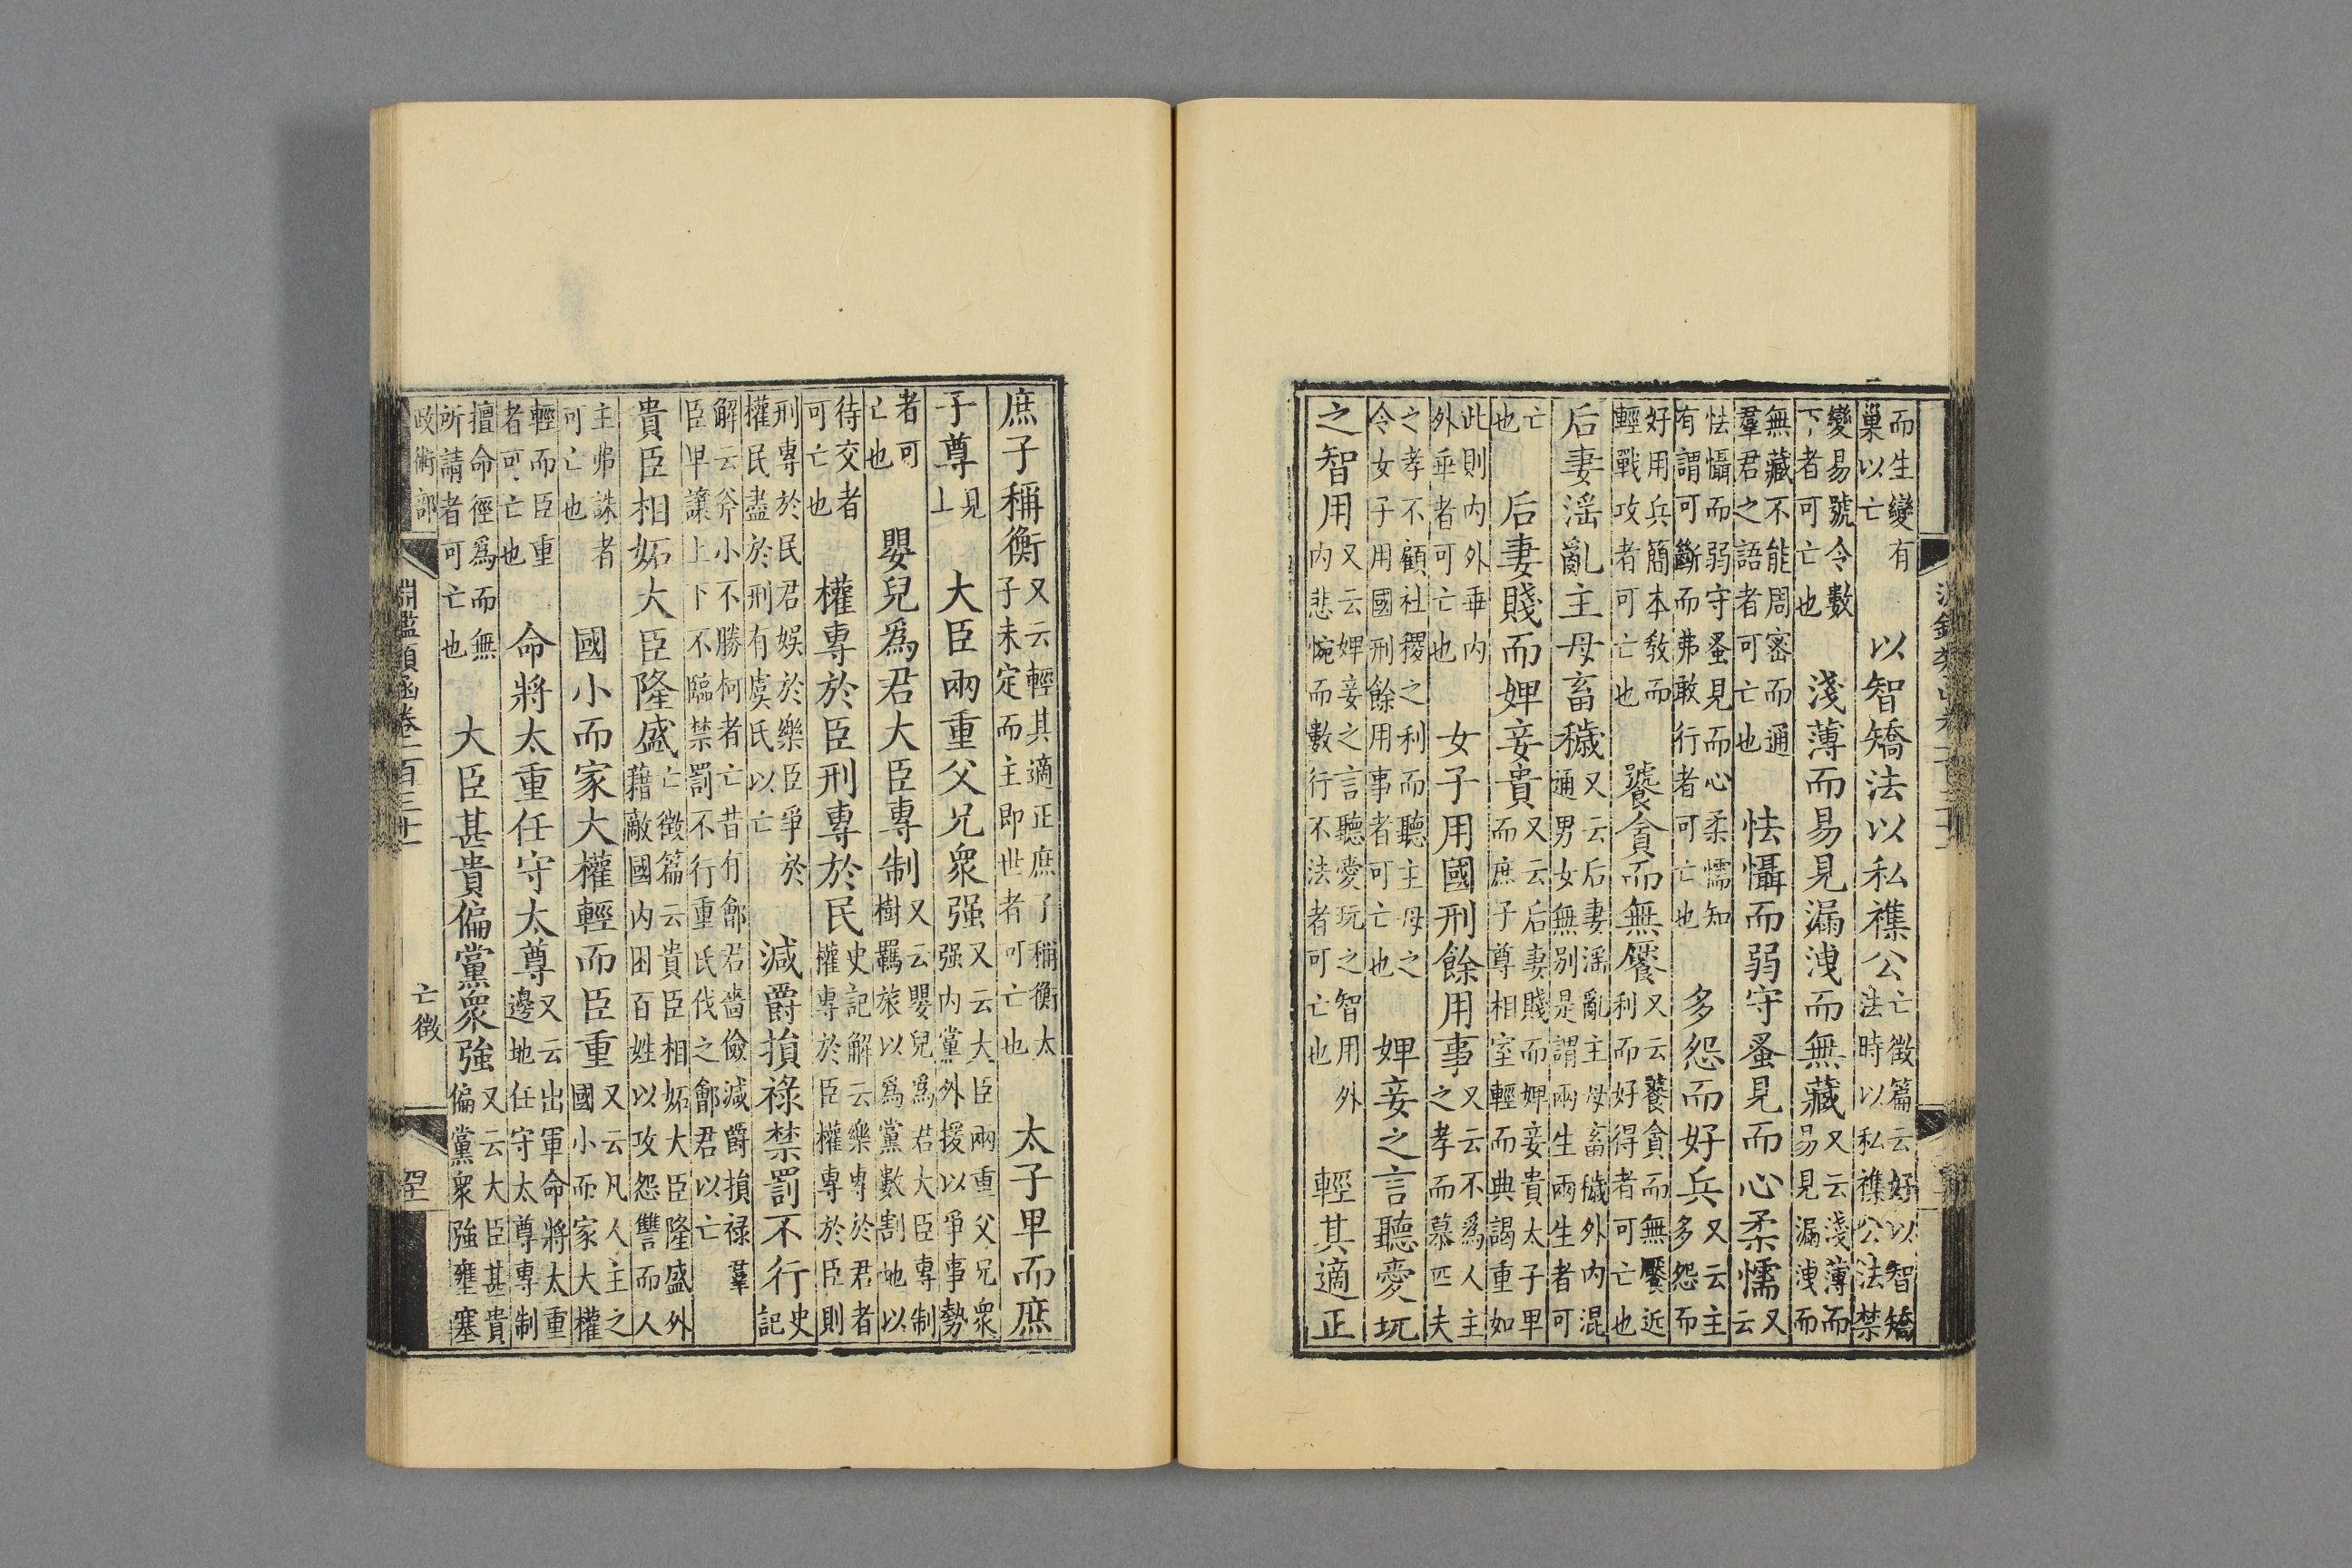 而生變有巢以亡　以智矯法以私襍公亡徵篇云好以智矯法時以私襍公法禁
變易號令數下者可亡也　淺薄而易見漏洩而無藏又云淺薄而易見漏洩而
無藏不能周密而通羣君之語者可亡也　怯懾而弱守蚤見而心柔懦又云
怯懾而弱守蚤見而心柔懦知有謂可斷而弗敢行者可亡也　多怨而好兵又云主多怨而
好用兵簡本敎而輕戰攻者可亡也　饕貪而無饜又云饕貪而無饜近利而好得者可亡也
后妻淫亂主母畜穢又云后妻淫亂主母畜穢外内混通男女無别是謂兩生兩生者可
亡也　后妻賤而婢妾貴又云后妻賤而婢妾貴太子卑而庶子尊相室輕而典謁重如
此則内外乖内外乖者可亡也　女子用國刑餘用事又云不爲人主之孝而慕匹夫
之孝不顧社稷之利而聽主母之令女子用國刑餘用事者可亡也　婢妾之言聽愛玩
之智用又云婢妾之言聽愛玩之智用外内悲惋而數行不法者可亡也　輕其適正
庶子稱衡又云輕其適正庶子稱衡太子未定而主即世者可亡也　太子卑而庶
子尊見上　大臣兩重父兄衆强又云大臣兩重父兄衆强内黨外援以爭事勢
者可亡也　嬰兒爲君大臣專制又云嬰兒爲君大臣專制樹羇旅以爲黨數割地以
待交者可亡也　權專於臣刑專於民史記解云樂專於君者權專於臣權專於臣則
刑專於民君娛於樂臣爭於權民盡於刑有虞氏以亡　減爵損祿禁罰不行史記
解云斧小不勝柯者亡昔有鄶君嗇儉減爵損祿羣臣卑讓上下不臨禁罰不行重氏伐之鄶君以亡
貴臣相妬大臣隆盛亡徵篇云貴臣相妬大臣隆盛外藉敵國内困百姓以攻怨讐而人
主弗誅者可亡也　國小而家大權輕而臣重又云凡人主之國小而家大權
輕而臣重者可亡也　命將太重任守太尊又云出軍命將太重邊地任守太尊專制
擅命徑爲而無所請者可亡也　大臣甚貴偏黨衆強又云大臣甚貴偏黨衆強壅塞
政術部　淵鑑類函卷一百三十一　亡徵